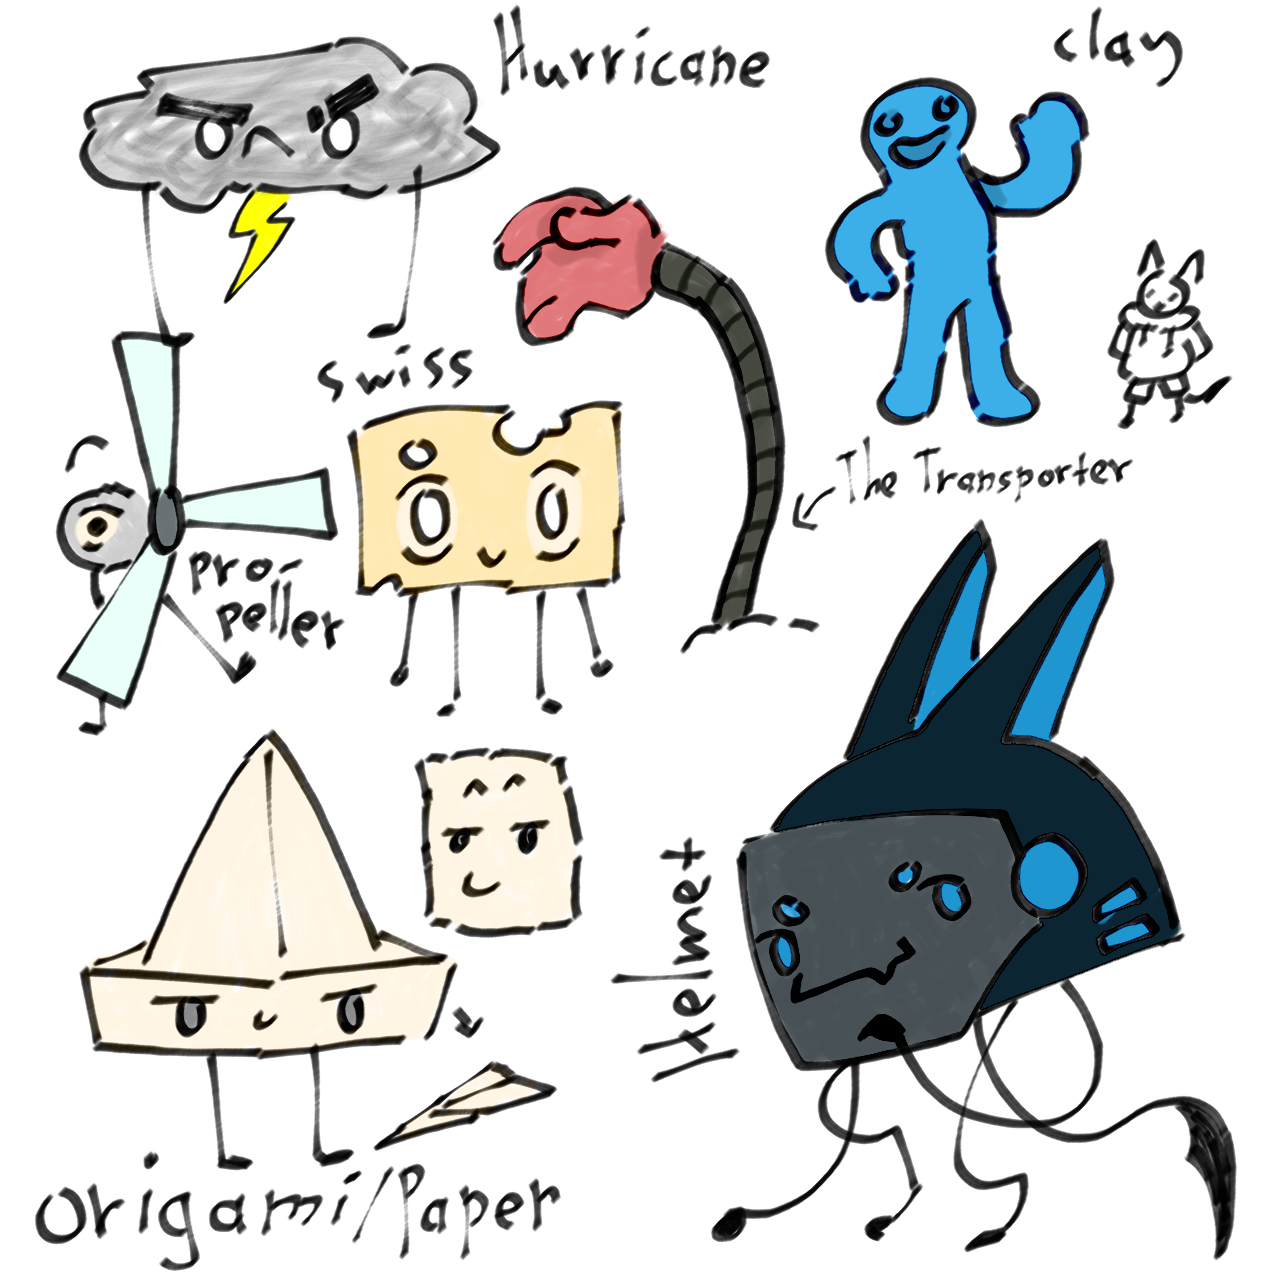 Hurricane
clay
swiss
The Transporter
pro-
peller
Helmet
Origami/Paper